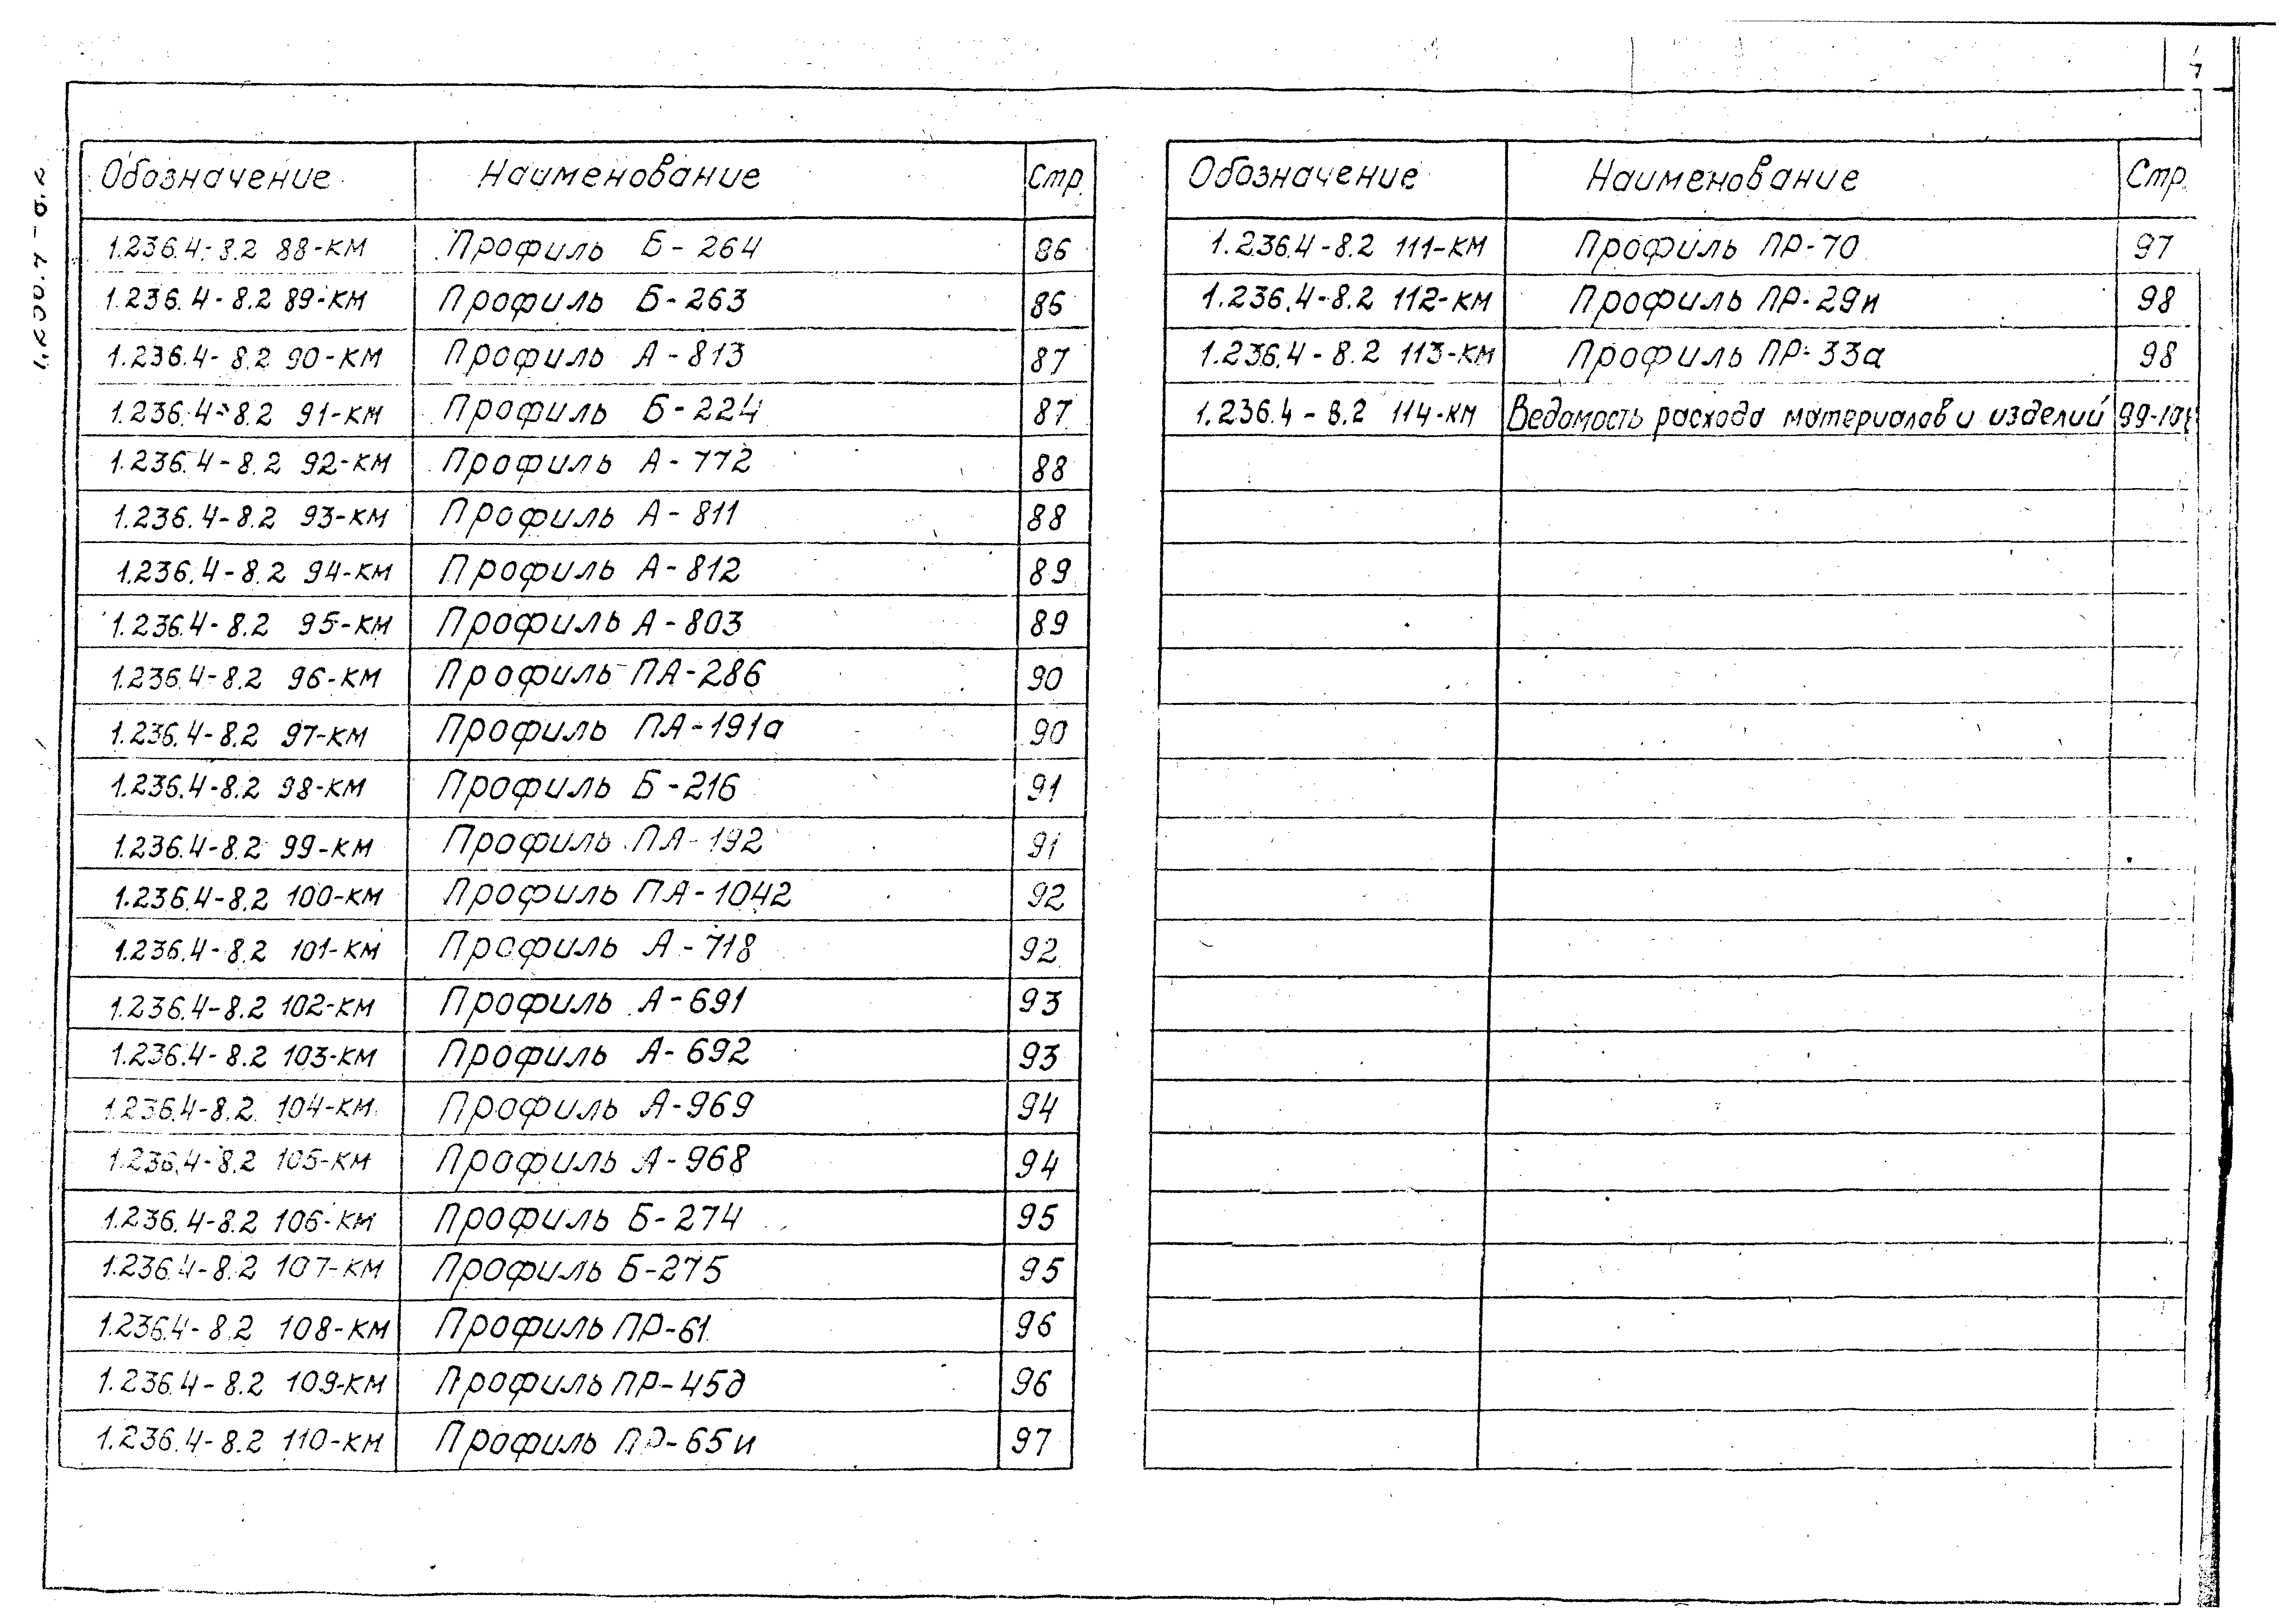 Обозначение Наименование Стр.
1.236.4-8.2 88-КМ Профиль Б-264 86
1.236.4-8.2 89-КМ Профиль Б-263 86
1.236.4-8.2 90-КМ Профиль А-813 87
1.236.4-8.2 91-КМ Профиль Б-224 87
1.236.4-8.2 92-КМ Профиль А-772 88
1.236.4-8.2 93-КМ Профиль А-811 88
1.236.4-8.2 94-КМ Профиль А-812 89
1.236.4-8.2 95-КМ Профиль А-803 89
1.236.4-8.2 96-КМ Профиль ПА-286 90
1.236.4-8.2 97-КМ Профиль ПА-191а 90
1.236.4-8.2 98-КМ Профиль Б-216 91
1.236.4-8.2 99-КМ Профиль ПА-192 91
1.236.4-8.2 100-КМ Профиль ПА-1042 92
1.236.4-8.2 101-КМ Профиль А-718 92
1.236.4-8.2 102-КМ Профиль А-691 93
1.236.4-8.2 103-КМ Профиль А-692 93
1.236.4-8.2 104-КМ Профиль А-969 94
1.236.4-8.2 105-КМ Профиль А-968 94
1.236.4-8.2 106-КМ Профиль Б-274 95
1.236.4-8.2 107-КМ Профиль Б-275 95
1.236.4-8.2 108-КМ Профиль ПР-61 96
1.236.4-8.2 109-КМ Профиль ПР-45д 96
1.236.4-8.2 110-КМ Профиль ПР-65и 97
Обозначение Наименование Стр.
1.236.4-8.2 111-КМ Профиль ПР-70 97
1.236.4-8.2 112-КМ Профиль ПР-29и 98
1.236.4-8.2 113-КМ Профиль ПР-33а 98
1.236.4-8.2 114-КМ Ведомость расхода материалов и изделий